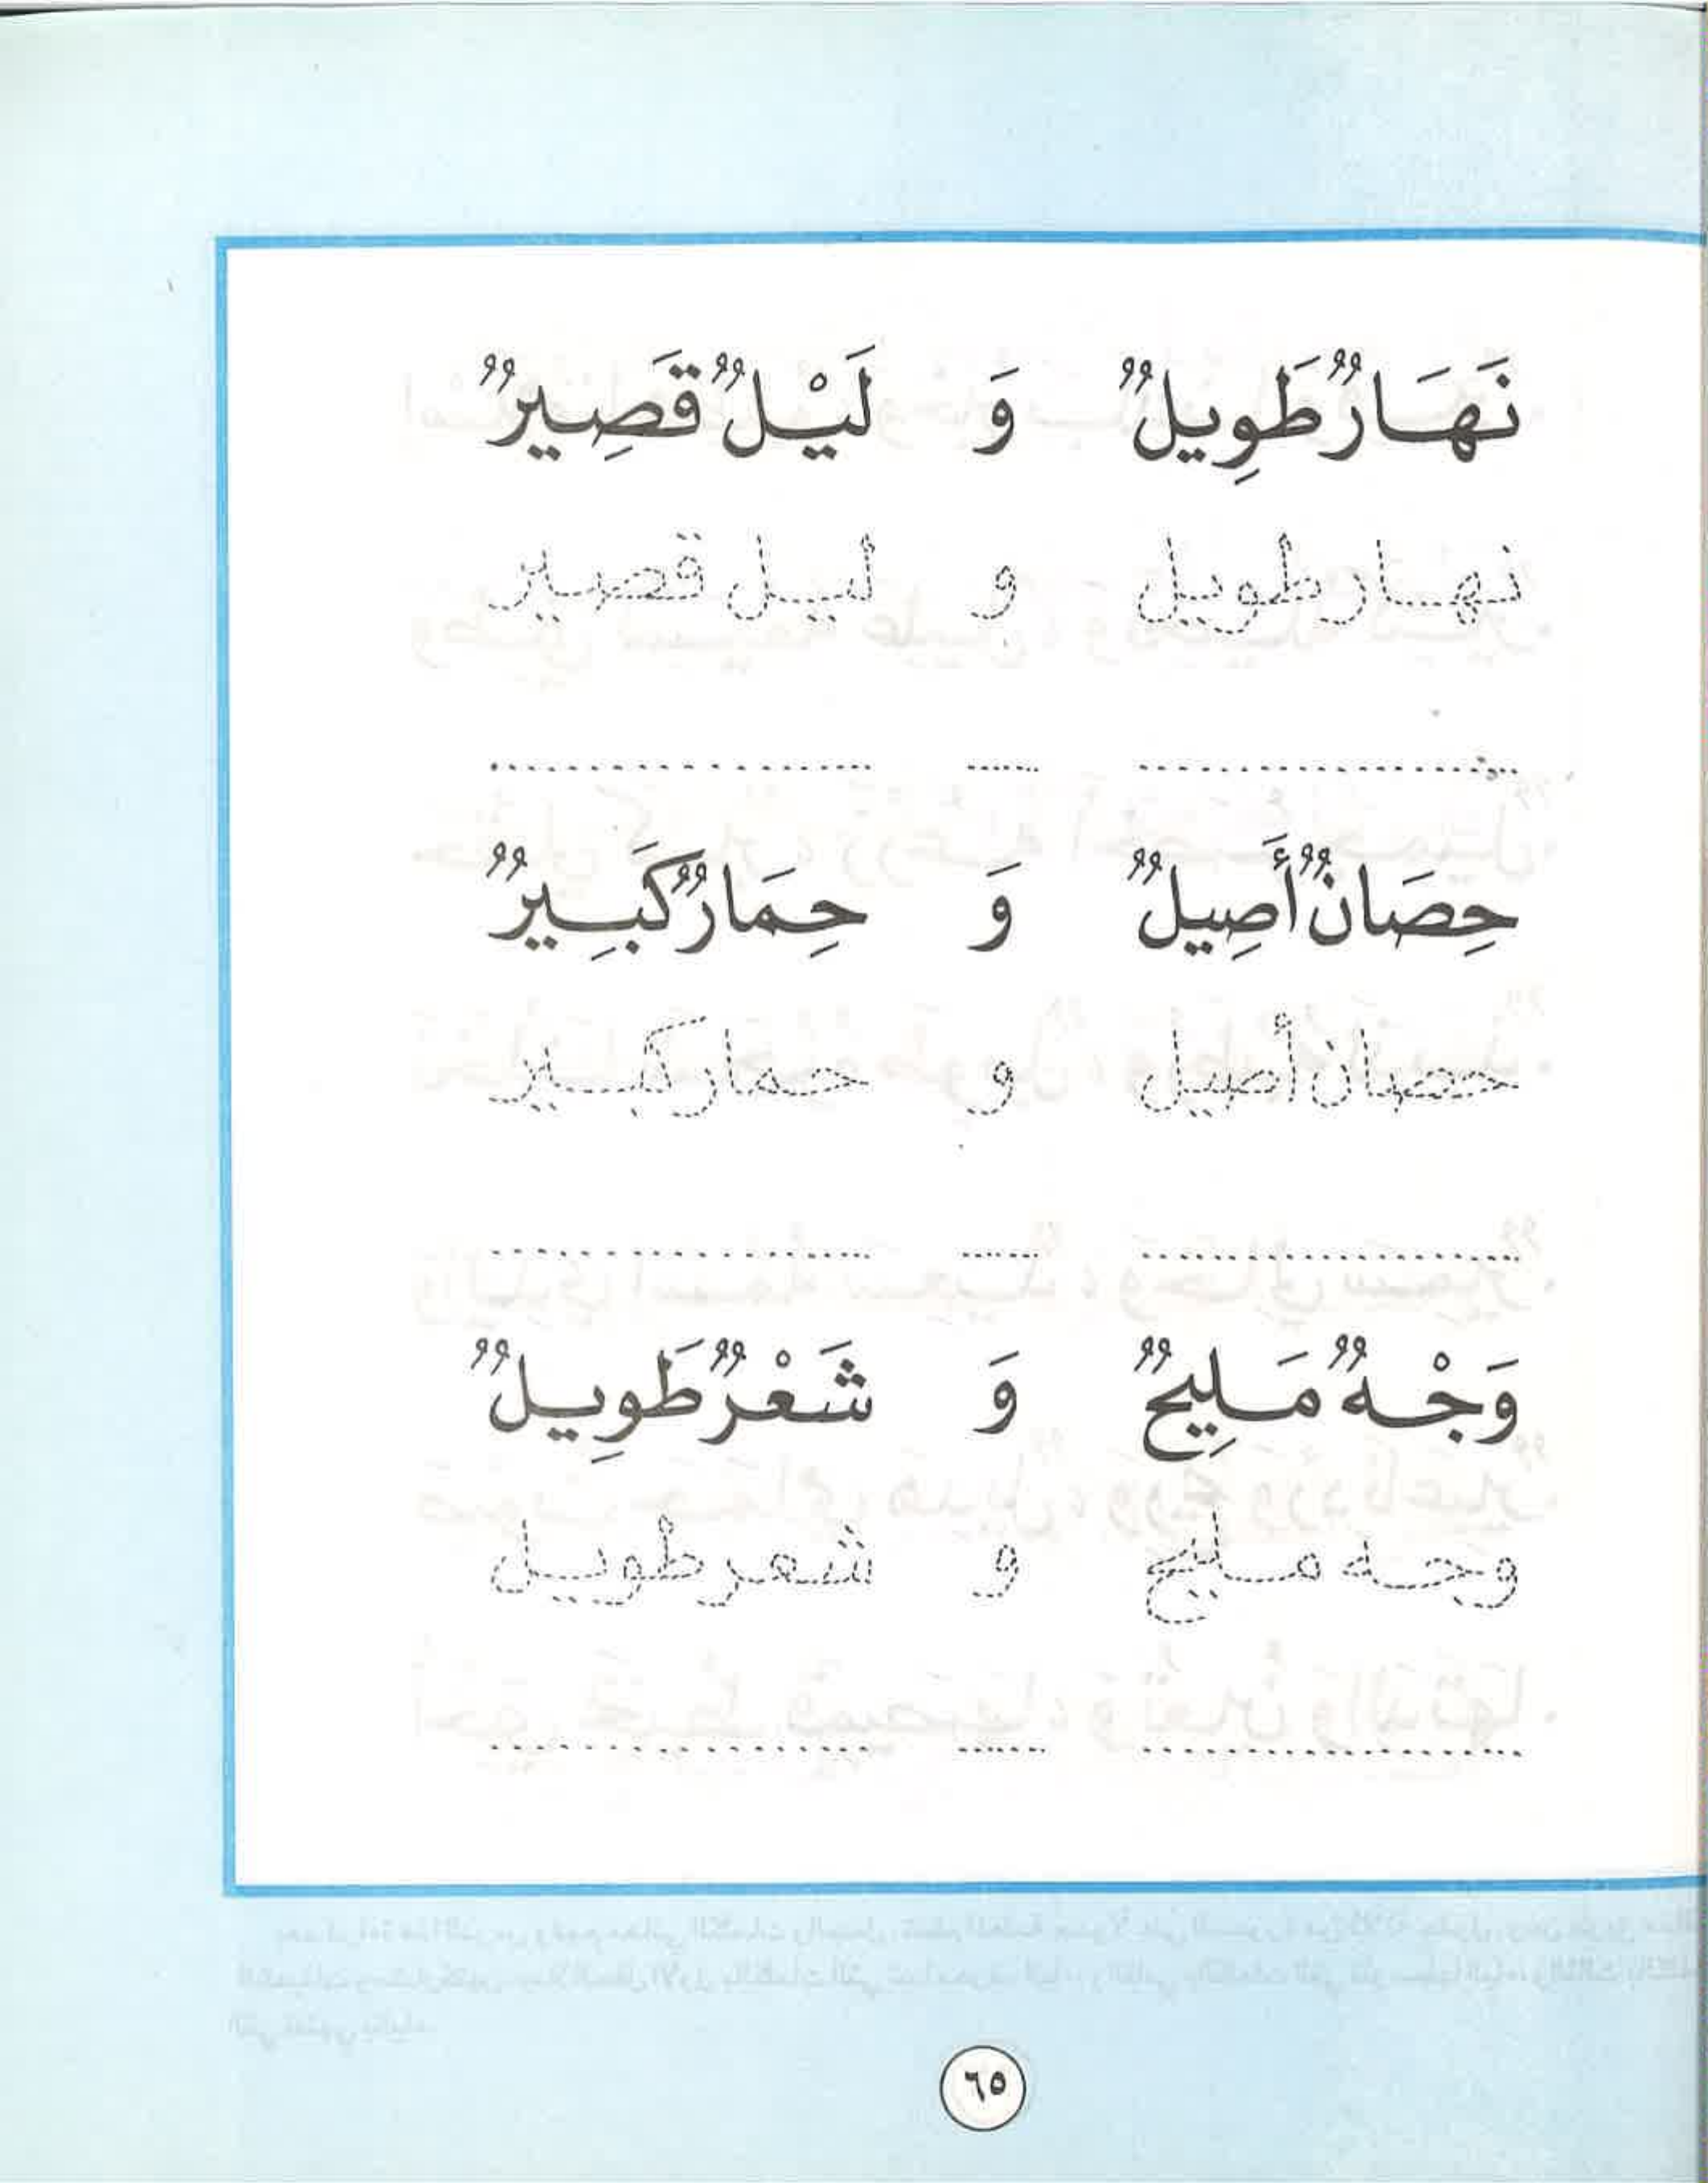 نَهَارٌ طَوِيلٌ وَ لَيْلٌ قَصِيرٌ
نهار طويل و ليل قصير
حِصَانٌ أَصِيلٌ وَ حِمَارٌ كَبِيرٌ
حصان أصيل و حمار كبير
وَجْهٌ مَلِيحٌ وَ شَعْرٌ طَوِيلٌ
وجه مليح و شعر طويل
٦٥